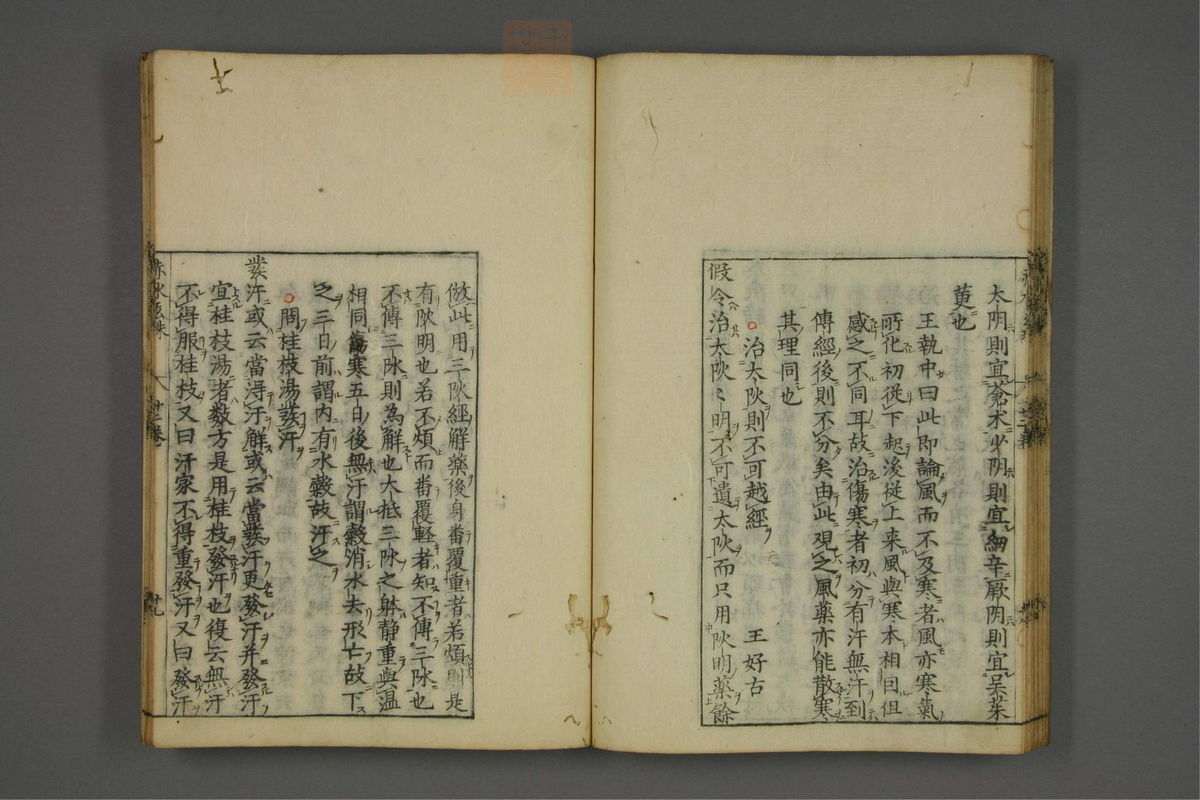 太阴則宜蒼朮少阴則宜細辛厥阴則宜呉茱
萸也
王執中曰此即論風而不及寒者風亦寒氣
所化初従下起後従上来風與寒本相同但
感之不同耳故治傷寒者初分有汗無汗到
傳經後則不分矣由此观之風藥亦能散寒
其理同也
治太阦則不可越經　王好古
假令治太阦〻明不可遺太阦而只用阦明藥餘
倣此用三阦經解藥後身番覆重者若煩則是
有阦明也若不煩而番覆軽者知不傳三阦也
不傳三阦則為解也大抵三阦之躰静重與温
相同傷寒五日後無汗謂穀消水去形亡故下
之三日前謂内有水穀故汗之
問桂枝湯發汗
汗或云當淂汗解或云當發汗更發汗并發汗
宜桂枝湯者数方是用桂枝發汗也復云無汗
不得服桂枝又曰汗家不得重發汗又曰發汗
發
赤水玄珠